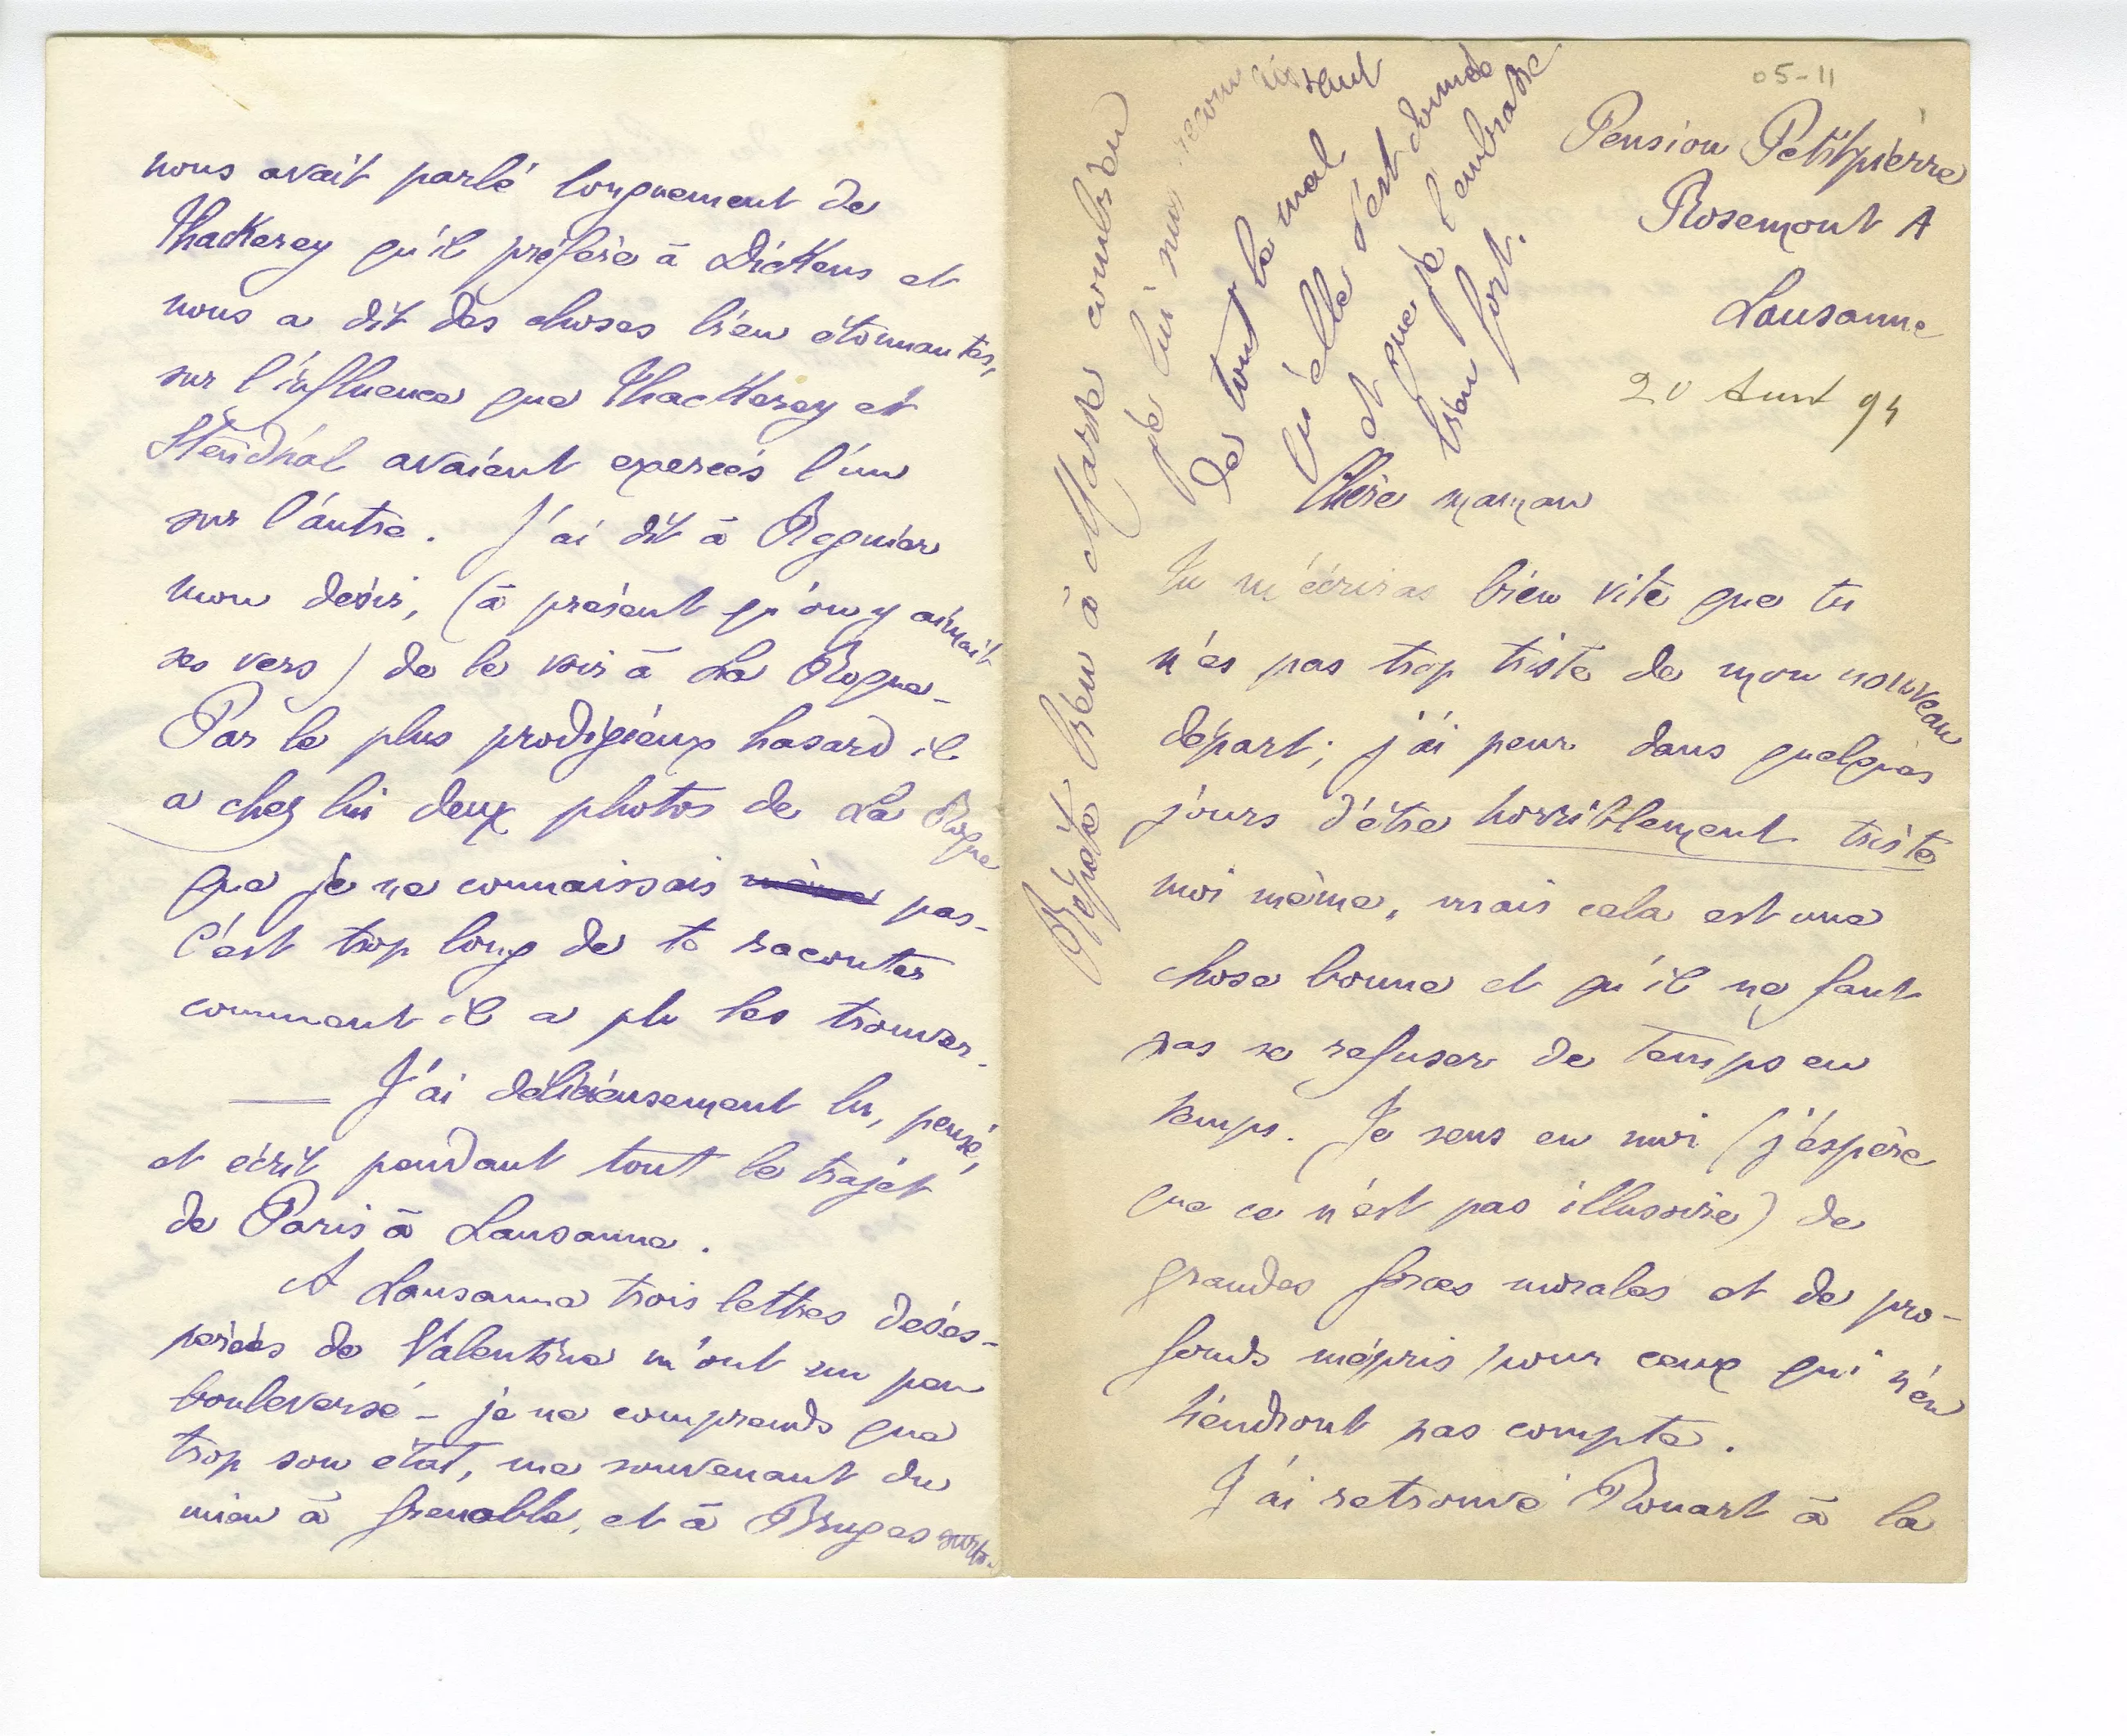 05-11
Pension Petitpierre
Rosemont A
Lausanne
20 Aout 94
Chère maman
Tu m'écriras bien vite que tu
n'es pas trop triste de mon nouveau
départ ; j'ai peur dans quelques
jours d'être horriblement triste
moi même, mais cela est une
chose bonne et qu'il ne faut
pas se refuser de temps en
temps. Je sens en moi (j'espère
que ce n'est pas illusoire) de
grandes forces morales et de pro-
fonds mépris pour ceux qui n'en
tiendront pas compte.
J'ai retrouvé Rouart à la
Répète bien à Marie combien
je lui suis reconnaissant
de tout le mal
qu'elle s'est donné
et que je l'embrasse
bien fort.
nous avait parlé longuement de
Thackeray qu'il préfère à Dickens et
nous a dit des choses bien étonnantes,
sur l'influence que Thackeray et
Stendhal avaient exercés l'un
sur l'autre. J'ai dit à Regnier
mon désir, (à présent qu'on y aimait
ses vers) de le voir à La Roque-
Par le plus prodigieux hasard il
a chez lui deux photos de La Roque
que je ne connaissais même pas-
C'est trop long de te raconter
comment il a pu les trouver-
— J'ai délicieusement lu, pensé,
et écrit pendant tout le trajet
de Paris à Lausanne.
A Lausanne trois lettres déses-
pérées de Valentine m'ont un peu
bouleversé - je ne comprends que
trop son état, me souvenant du
mien à Grenoble, et à Bruges